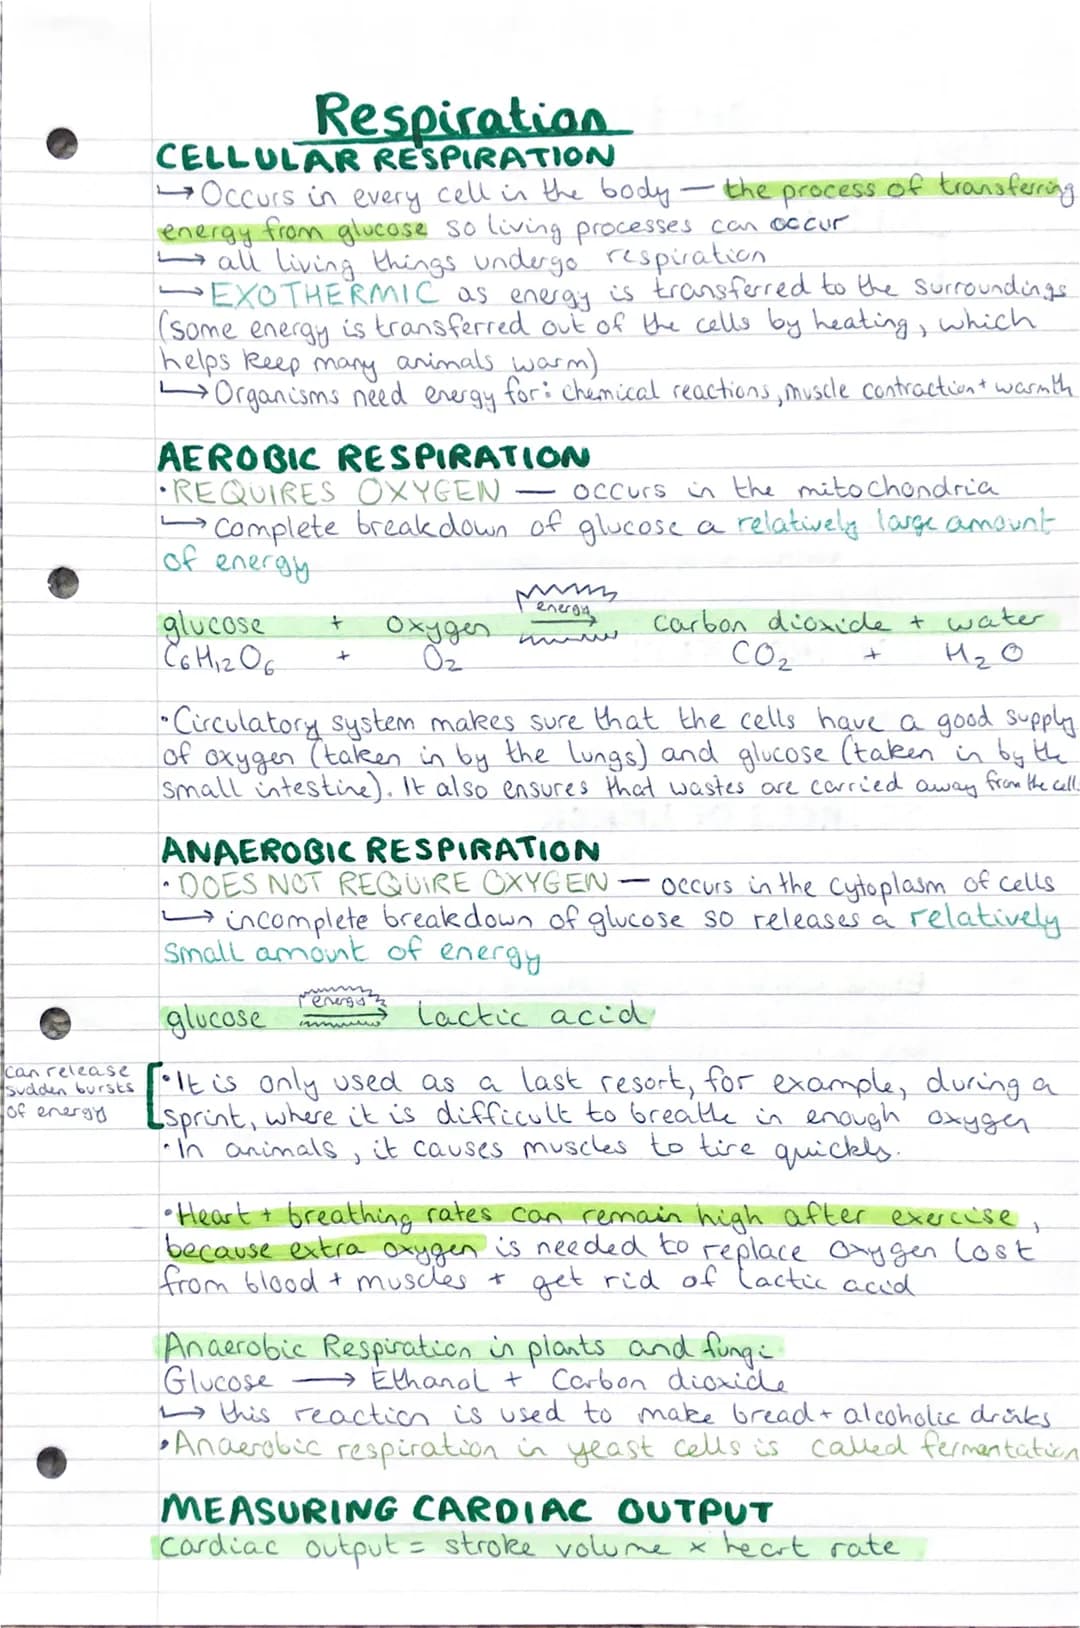 Respiration
CELLULAR RESPIRATION
↳ Occurs in every cell in the body — the process of transferring
energy from glucose so living processes can occur
↳ all living things undergo respiration
↳ EXOTHERMIC as energy is transferred to the surroundings
(some energy is transferred out of the cells by heating, which
helps keep many animals warm)
↳ Organisms need energy for: chemical reactions, muscle contraction + warmth
AEROBIC RESPIRATION
• REQUIRES OXYGEN — occurs in the mitochondria
↳ complete breakdown of glucose a relatively large amount
of energy
energy
glucose + oxygen → carbon dioxide + water
C₆H₁₂O₆ + O₂ CO₂ + H₂O
• Circulatory system makes sure that the cells have a good supply
of oxygen (taken in by the lungs) and glucose (taken in by the
small intestine). It also ensures that wastes are carried away from the cell.
ANAEROBIC RESPIRATION
• DOES NOT REQUIRE OXYGEN — occurs in the cytoplasm of cells
↳ incomplete breakdown of glucose so releases a relatively
small amount of energy
energy
glucose → lactic acid
can release
sudden bursts
of energy
• It is only used as a last resort, for example, during a
sprint, where it is difficult to breathe in enough oxygen
• In animals, it causes muscles to tire quickly.
• Heart + breathing rates can remain high after exercise,
because extra oxygen is needed to replace oxygen lost
from blood + muscles + get rid of lactic acid
Anaerobic Respiration in plants and fungi
Glucose → Ethanol + Carbon dioxide
↳ this reaction is used to make bread + alcoholic drinks
• Anaerobic respiration in yeast cells is called fermentation
MEASURING CARDIAC OUTPUT
cardiac output = stroke volume × heart rate